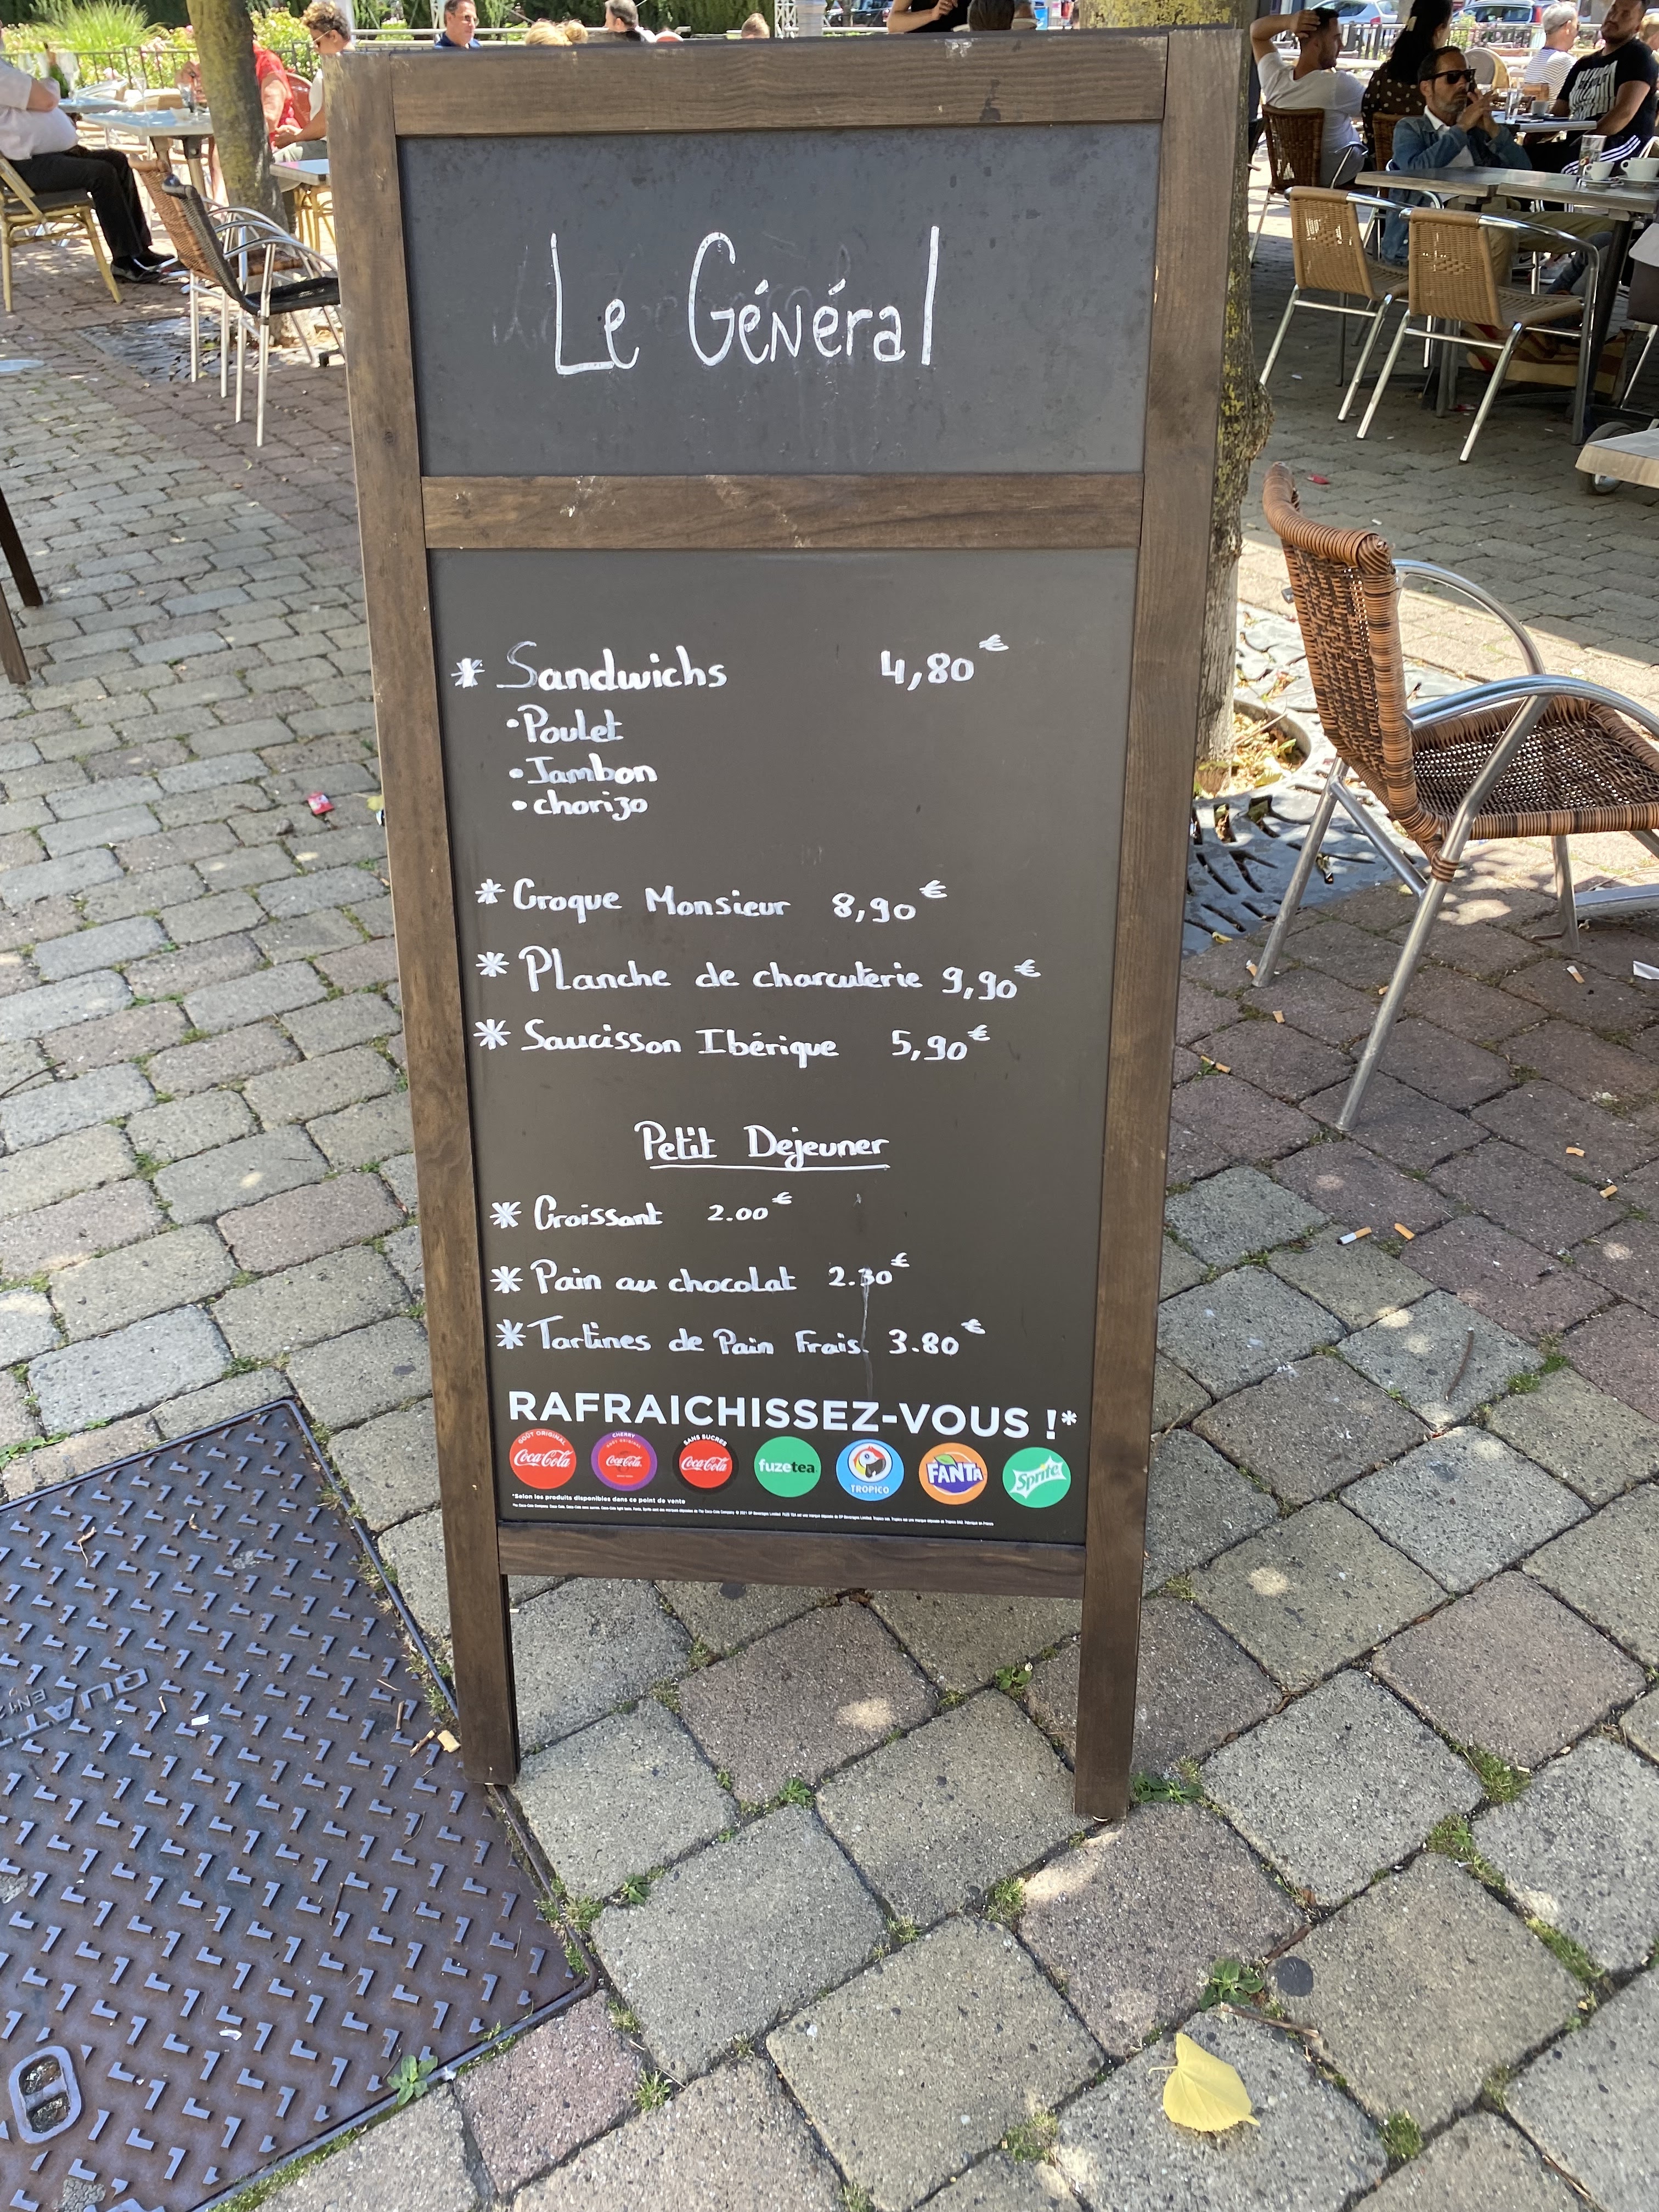 Le Général
* Sandwichs 4,80€
• Poulet
• Jambon
• chorizo
* Croque Monsieur 8,90€
* Planche de charcuterie 9,90€
* Saucisson Ibérique 5,90€
Petit Dejeuner
* Croissant 2.00€
* Pain au chocolat 2.30€
* Tartines de Pain Frais. 3.80€
RAFRAICHISSEZ-VOUS !*
GOÛT ORIGINAL Coca-Cola
CHERRY GOÛT ORIGINAL Coca-Cola
SANS SUCRES Coca-Cola
fuzetea
TROPICO
FANTA
Sprite
*Selon les produits disponibles dans ce point de vente